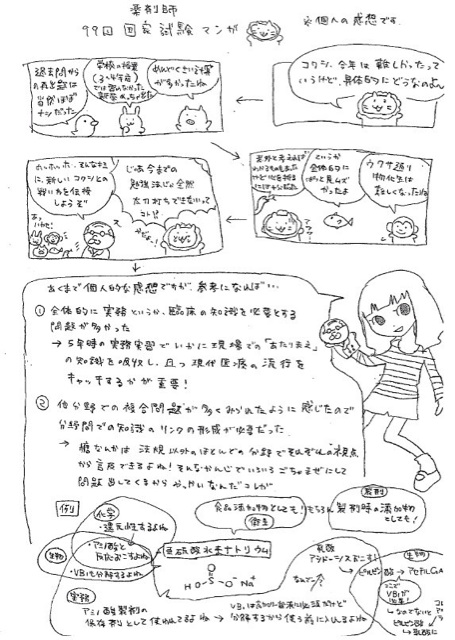 薬剤師
99回 国家試験 マンガ
※個人の感想です
コクシ、今年は難しかったって
いうけど、具体的にどうなのよ
めんどくさい計算
が多かったね
学校の授業
(3〜4年前)
では習わなかった
過去問から
の再出題は
当然ほぼ
ナシだった
ウワサ通り
物化生は
難しくなったね
というか
全体的に
じゃあ今までの
勉強法じゃ全然
太刀打ちできないって
コト!?
ホッホッホ、そんなキミ
に、新しいコクシとの
戦い方を伝授
しようぞ
あくまで個人的な感想ですが、参考になれば…
① 全体的に実務というか、臨床の知識を必要とする
問題が多かった
→ 5年時の実務実習でいかに現場での「あたりまえ」
の知識を吸収し、且つ現代医療の流行を
キャッチするかが重要!
② 他分野での複合問題が多くみられたように感じたので
分野間での知識のリンクの形成が必要だった
→ 糖なんかは法規以外のほとんどの分野でそれぞれの視点
から言及できるよね!そんなかんじでいろいろごちゃまぜにして
問題出してくるからやっかいなんだコレが
例)
化学
・還元性するよね
・アミノ酸と
反応おこすよね
生物
・VB1も分解するよね
実務
アミノ酸製剤の
保存剤として使われてるよね
亜硫酸水素ナトリウム
HO S O⁻ Na⁺
O
食品添加物としても!
衛生
もちろん
製剤
製剤時の添加物
としても!
乳酸
アシドーシスおこす!
なんで?
分解するから使う前に入れるよね
生物
ピルビン酸 → アセチルCoA
ここで
VB1が
必要!
なのでないと
ピルビン酸